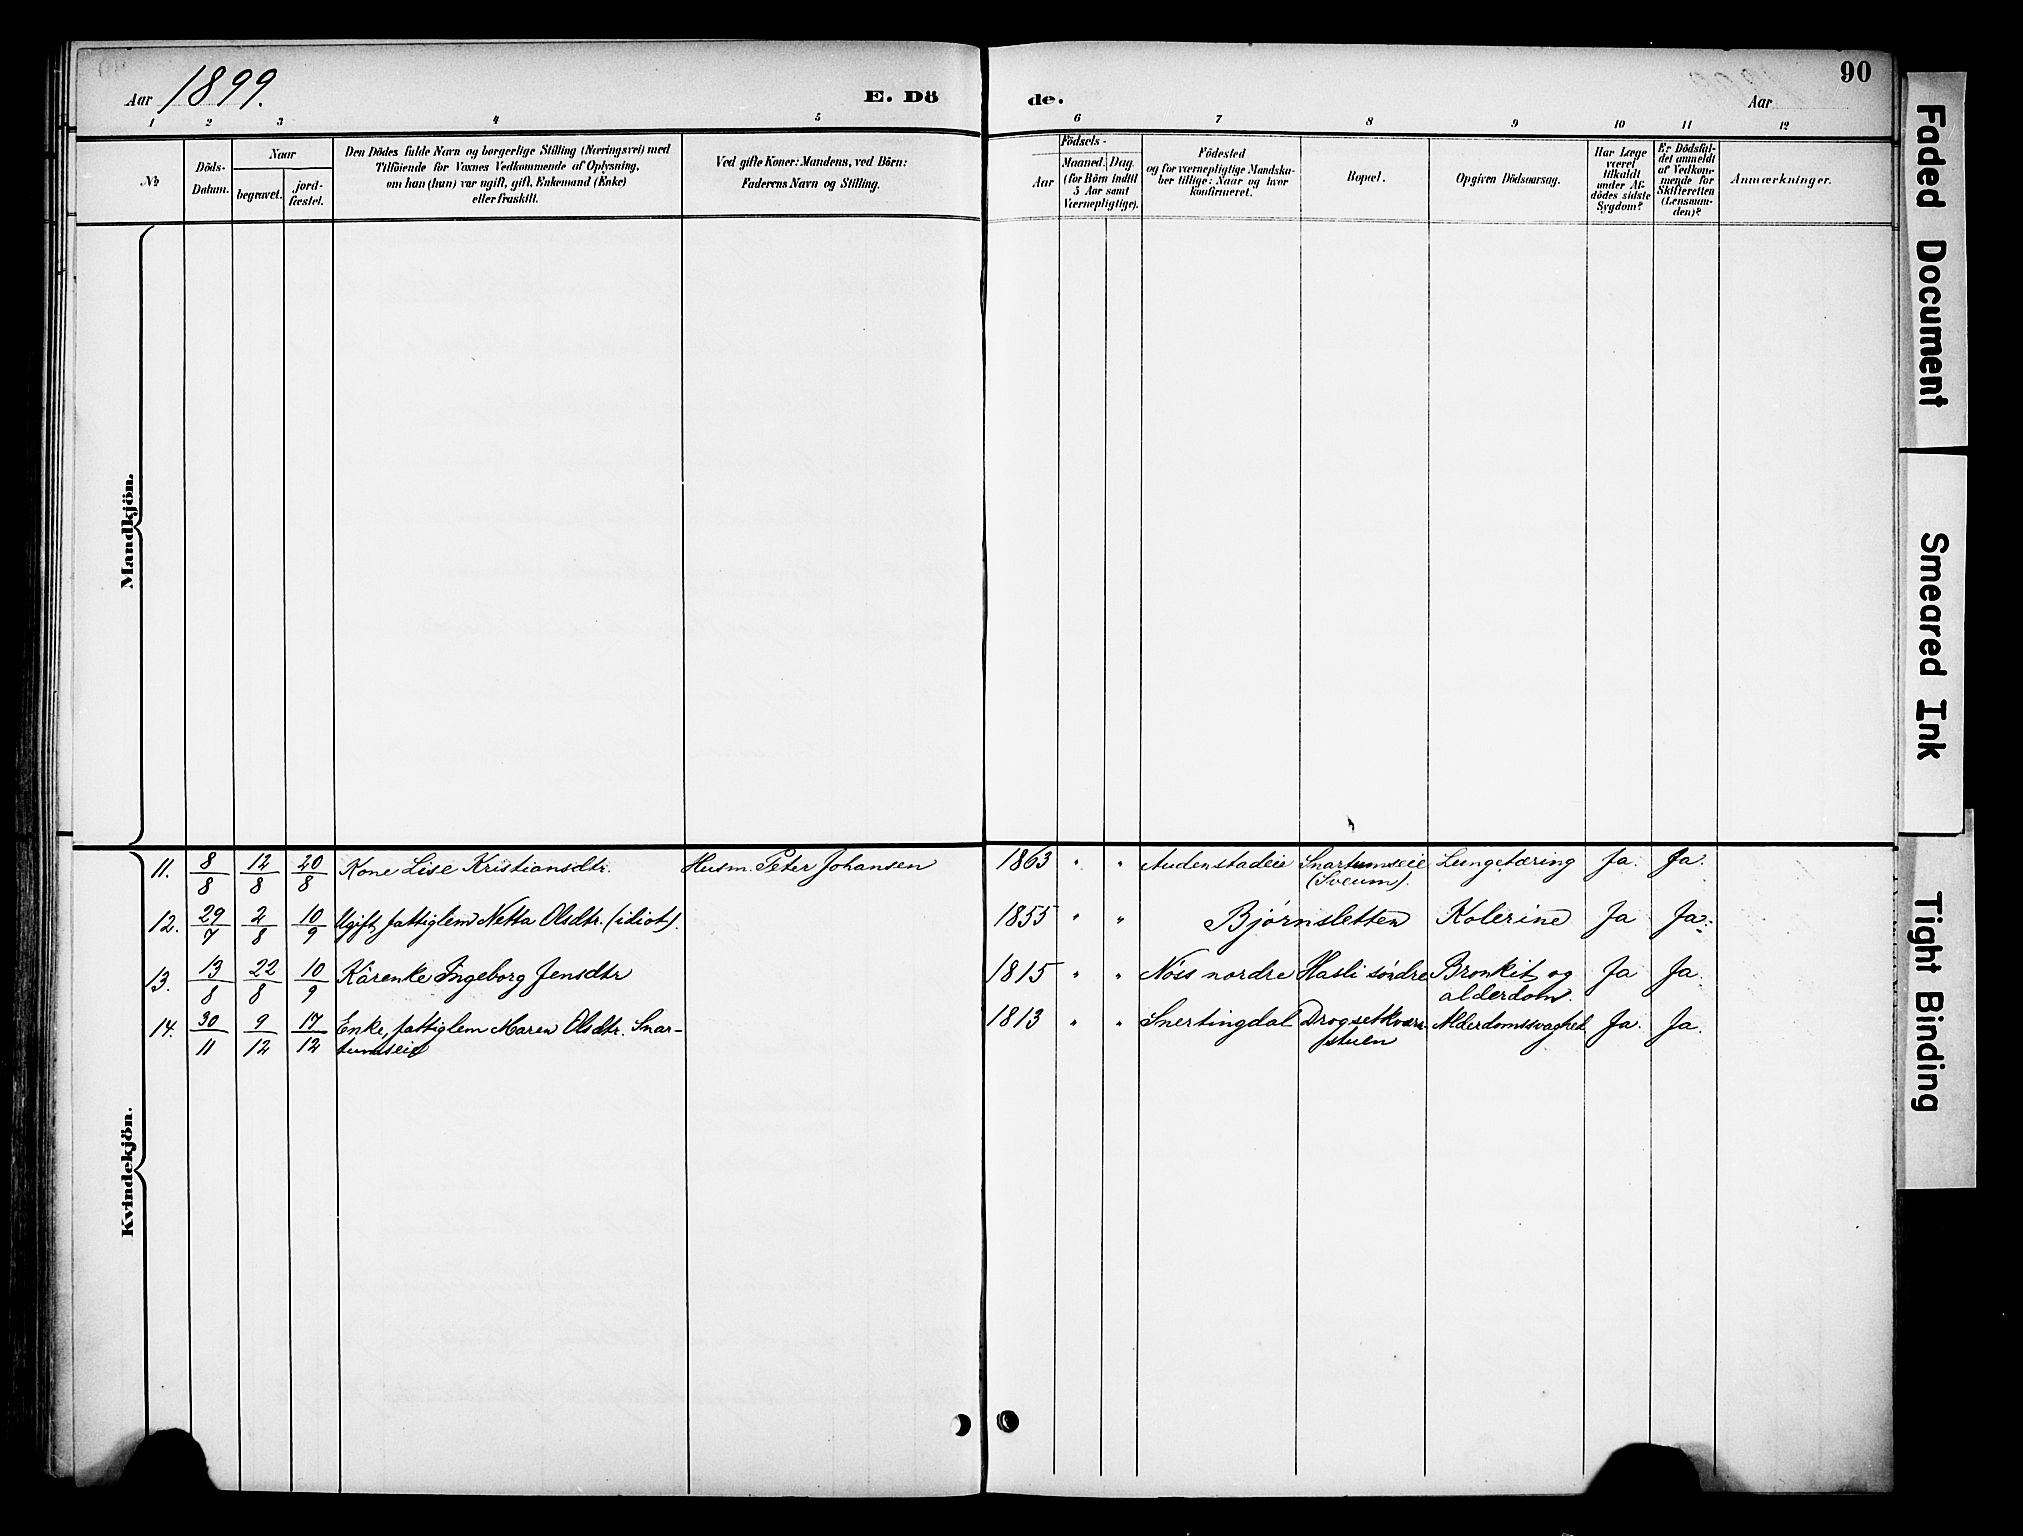 Aar 1899.
E. Döde.
Aar
90
1 2 3 4 5 6 7 8 9 10 11 12
№
Döds-Datum.
Naar
begravet.
jord-fæstet.
Den Dödes fulde Navn og borgerlige Stilling (Næringsvei) med
Tilföiende for Voxnes Vedkommende af Oplysning,
om han (hun) var ugift, gift, Enkemand (Enke)
eller fraskilt.
Ved gifte Koner: Mandens, ved Börn:
Faderens Navn og Stilling.
Födsels-
Aar
Maaned. Dag.
(for Börn indtil
5 Aar samt
Værnepligtige).
Födested
og for værnepligtige Mandska-
ber tillige: Naar og hvor
konfirmeret.
Bopæl.
Opgiven Dödsaarsag.
Har Læge
været
tilkaldt
under Af-
dödes sidste
Sygdom?
Er Dödsfal-
det anmeldt
af Vedkom-
mende for
Skifteretten
(Lensman-
den)?
Anmærkninger.
Mandkjön.
Kvindekjön.
11. 8/8 12/8 20/8 Kone Lise Kristiansdtr. Husm. Peter Johansen 1863 " " Audenstadeie Snartumseie Lungetæring Ja. Ja.
(Sveum).
12. 29/7 2/8 10/9 Ugift, fattiglem Netta Olsdtr. (idiot). 1855 " " Bjørnsletten Kolerine Ja Ja.
13. 13/8 22/8 10/9 Kårenke Ingeborg Jensdtr 1815 " " Nøss nordre Hasli søndre Bronkit og Ja Ja.
alderdom.
14. 30/11 9/12 17/12 Enke, fattiglem Maren Olsdtr. Snar- 1813 " " Snertingdal Drogsetkværn- Alderdomssvaghed Ja. Ja.
tumseie stuen
Faded Document
Smeared Ink
Tight Binding